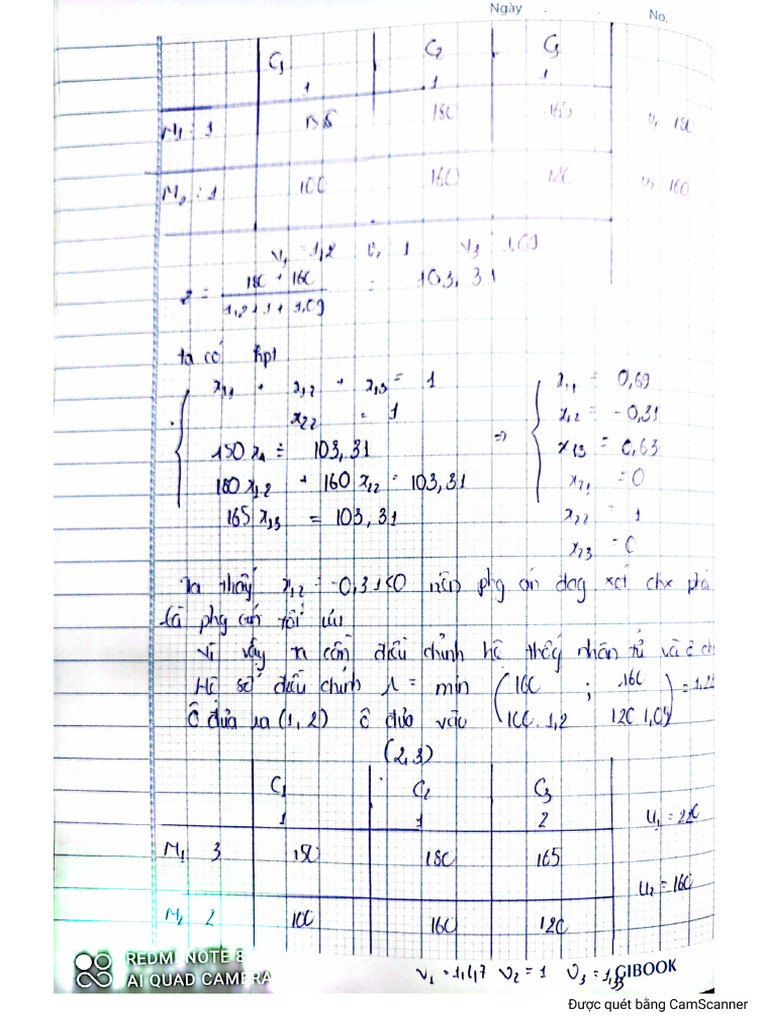 Ngày No.
C1 C2 C3
1 1 1
M1 : 1 180 165 u1 180
M2 : 1 100 160 120 u2 160
v1 = 1,2 1 v3 1,09
z = (180 + 160) / (1,2 + 1 + 1,09) = 103,31
ta có hpt
x11 + x12 + x13 = 1
x22 = 1
150 = 103,31
180 x12 + 160 = 103,31
165 x13 = 103,31
=> x11 = 0,69
x12 = -0,31
x13 = 0,63
x21 = 0
x22 = 1
x23 = 0
Ta thấy x12 = -0,31<0 nên phg án đag xét chx phả
là phg án tối ưu
Vì vậy ta cần điều chỉnh hệ thống nhân tử và ô ch
Hệ số điều chỉnh λ = min (160 / 100.1,2 ; 160 / 120.1,09) = 1,22
Ô đưa ra (1, 2) ô đưa vào
(2,3)
C1 C2 C3
1 1 2 u1 = 220
M1 3 150 180 165
u2 = 160
M2 2 100 160 120
v1 = 1,47 v2 = 1 v3 = 1,33
GIBOOK
REDMI NOTE 8
AI QUAD CAMERA
Được quét bằng CamScanner